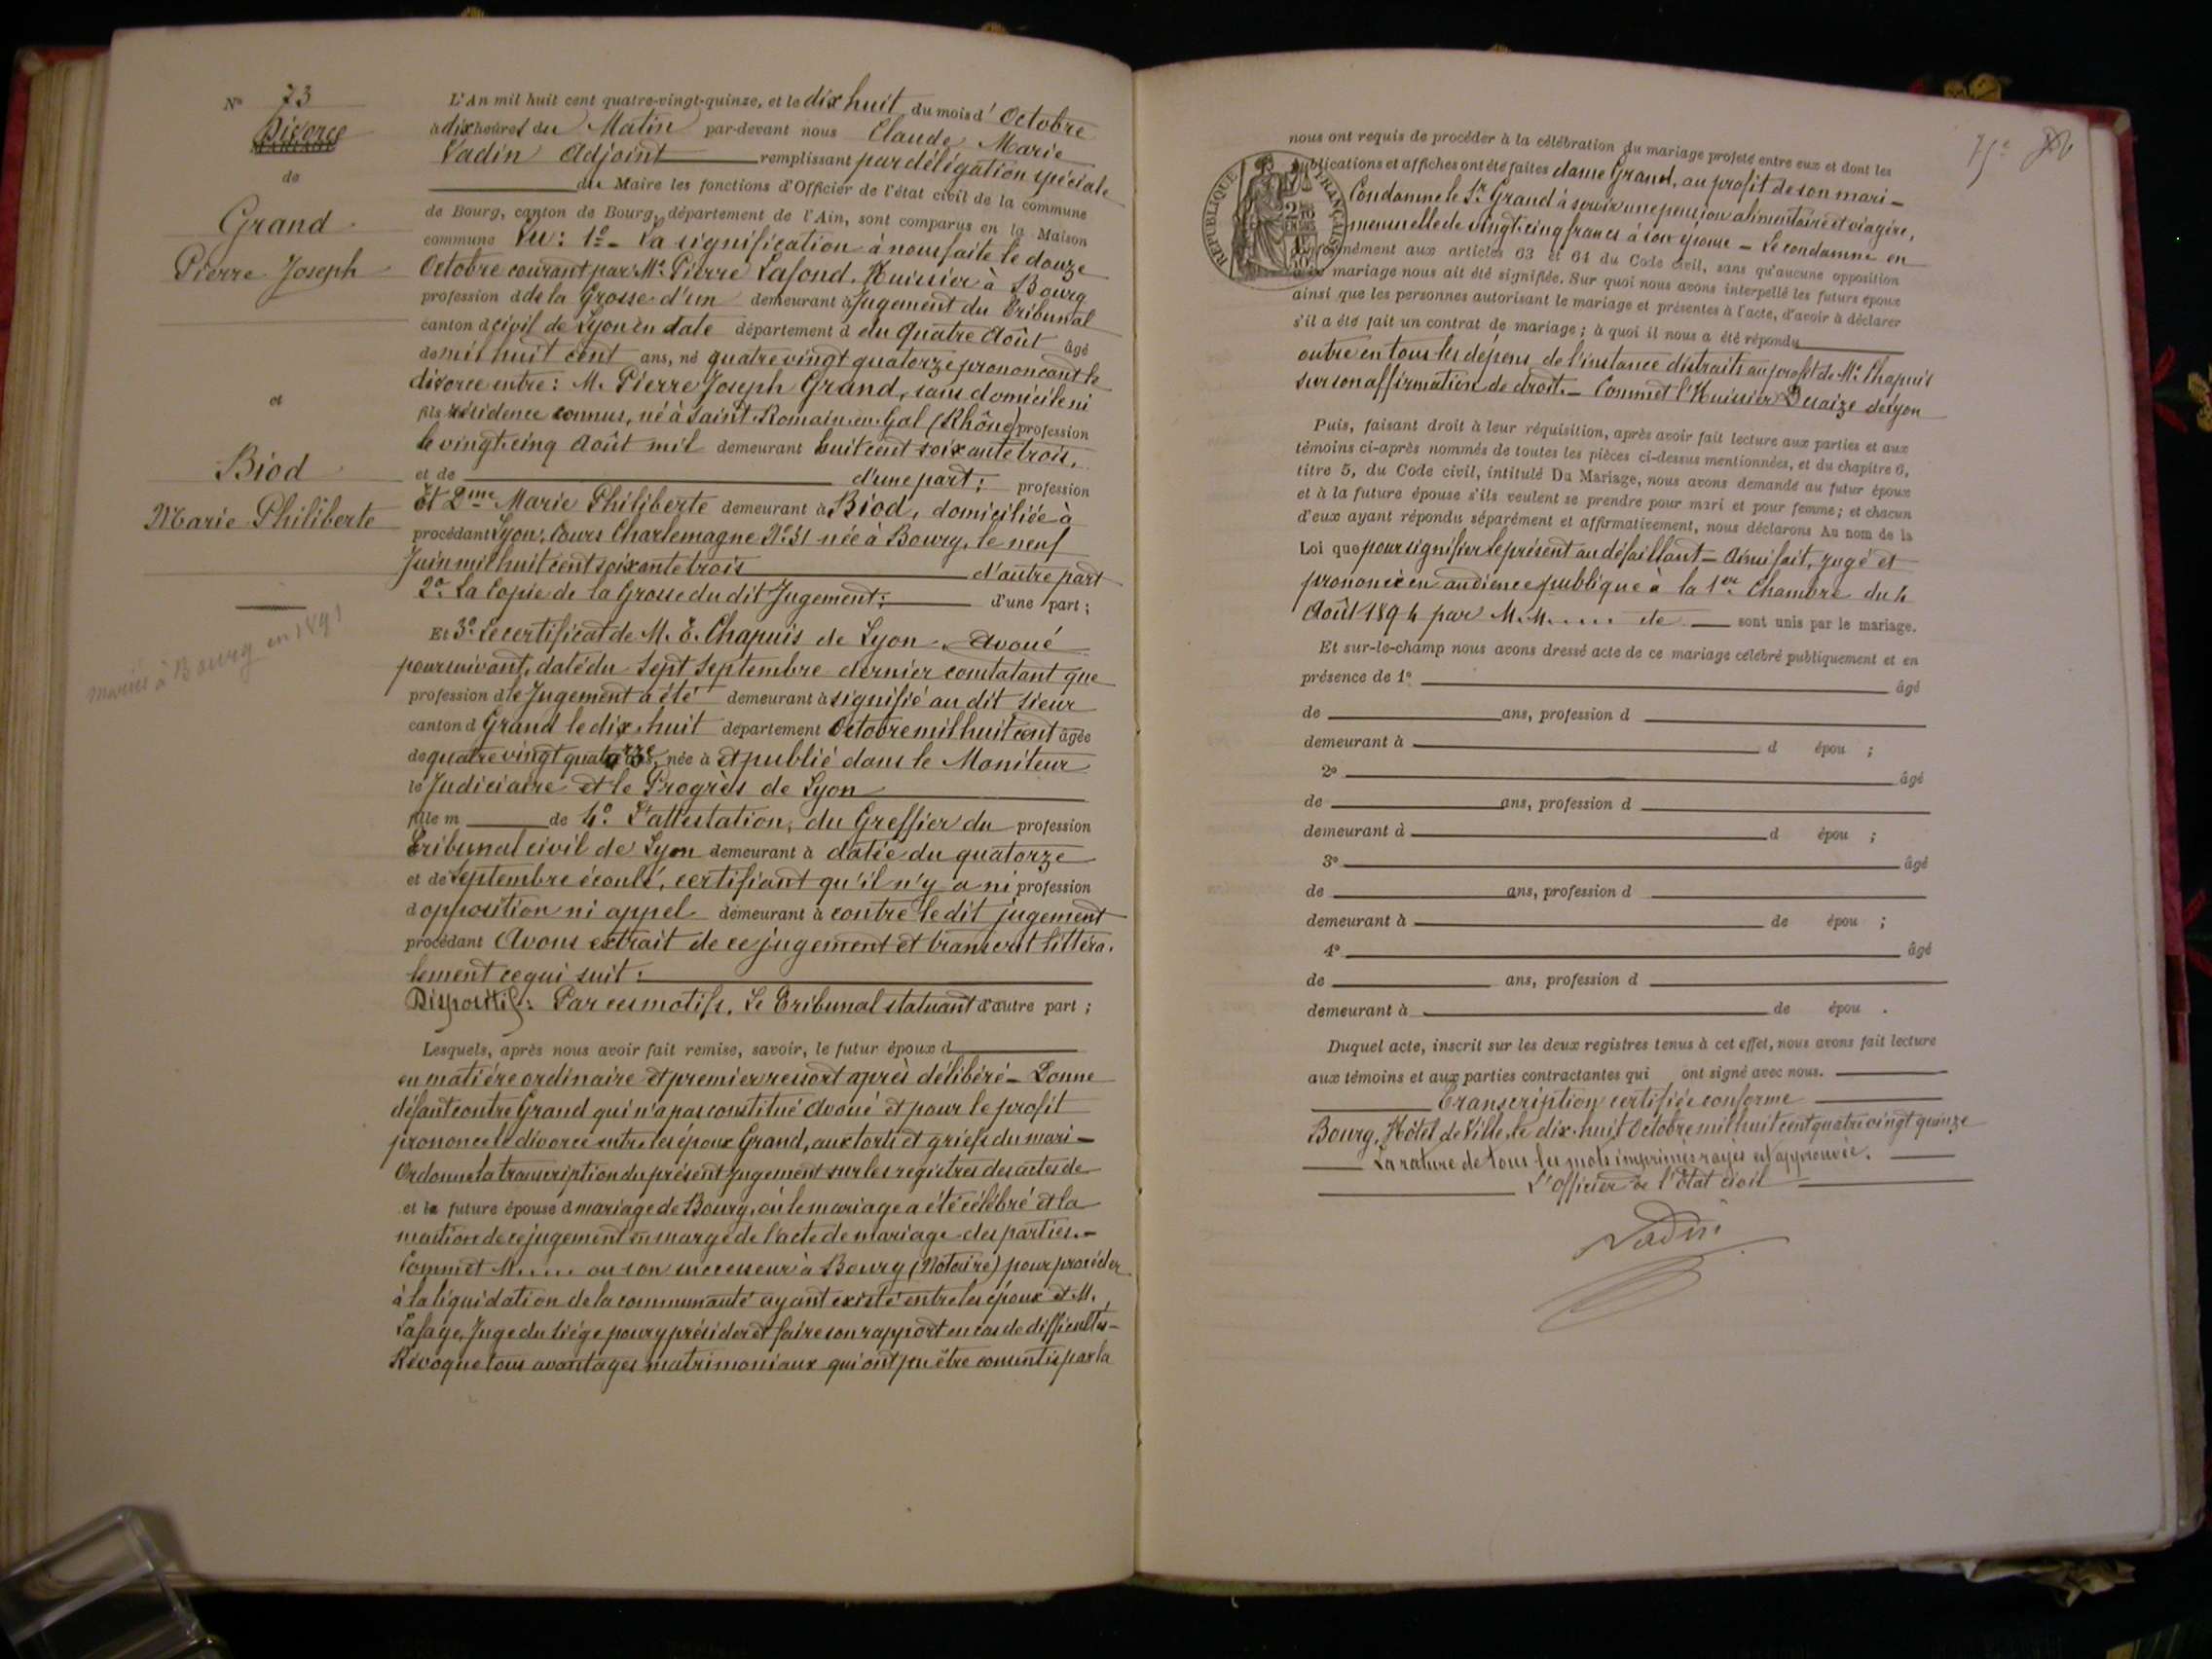 N° 73
Divorce
de
Grand
Pierre Joseph
et
Biod
Marie Philiberte
mariés à Bourg en 1891
L'An mil huit cent quatre-vingt-quinze, et le dix huit du mois d'Octobre
à dix heures du Matin par-devant nous Claude Marie
Vadin Adjoint remplissant par délégation spéciale
du Maire les fonctions d'Officier de l'état civil de la commune
de Bourg, canton de Bourg, département de l'Ain, sont comparus en la Maison
commune Vu : 1° - La signification à nous faite le douze
Octobre courant par Me Pierre Lafond, Huissier à Bourg
profession d de la Grosse d'un demeurant à Jugement du Tribunal
canton d civil de Lyon en date département d du quatre Août âgé
de mil huit cent ans, né quatre vingt quatorze prononçant le
divorce entre : M. Pierre Joseph Grand, sans domicile ni
fils résidence connus, né à Saint-Romain-en-Gal (Rhône) profession
le vingt-cinq Août mil demeurant huit cent soixante trois,
et de d'une part ; profession
Et 2me Marie Philiberte demeurant à Biod, domiciliée à
procédant Lyon, Cours Charlemagne N° 51 née à Bourg, le neuf
Juin mil huit cent soixante trois d'autre part
2° La Copie de la Grosse du dit Jugement ; d'une part ;
Et 3° Le certificat de M. E. Chapuis de Lyon, Avoué
poursuivant, daté du sept Septembre dernier constatant que
profession d le Jugement a été demeurant à signifié au dit sieur
canton d Grand le dix-huit département Octobre mil huit cent âgée
de quatre vingt quatorze ans, née à et publié dans le Moniteur
le Judiciaire et le Progrès de Lyon
fille m de 4° L'attestation, du Greffier du profession
Tribunal civil de Lyon demeurant à datée du quatorze
et de Septembre écoulé, certifiant qu'il n'y a ni profession
d opposition ni appel demeurant à contre le dit jugement
procédant Avons extrait de ce jugement et transcrit littéra-
lement ce qui suit :
Dispositif : Par ces motifs, Le Tribunal statuant d'autre part ;
Lesquels, après nous avoir fait remise, savoir, le futur époux d
en matière ordinaire et premier ressort après délibéré - Donne
défaut contre Grand qui n'a pas constitué Avoué et pour le profit
prononce le divorce entre les époux Grand, aux torts et griefs du mari -
Ordonne la transcription du présent Jugement sur les registres des actes de
et la future épouse d mariage de Bourg, où le mariage a été célébré et la
mention de ce jugement en marge de l'acte de mariage des parties. -
Commet M..... ou son successeur à Bourg (Notaire) pour procéder
à la liquidation de la communauté ayant existé entre les époux et M.
Lafage, Juge du Siége pour y présider et faire son rapport en cas de difficultés -
Révoque tous avantages matrimoniaux qui ont pu être consentis par la
75e
RÉPUBLIQUE FRANÇAISE
nous ont requis de procéder à la célébration du mariage projeté entre eux et dont les
publications et affiches ont été faites dame Grand, au profit de son mari -
Condamne le Sr Grand à servir une pension alimentaire et viagère,
mensuelle de vingt-cinq francs à son épouse - Le condamne en
conformément aux articles 63 et 64 du Code civil, sans qu'aucune opposition
mariage nous ait été signifiée. Sur quoi nous avons interpellé les futurs époux
ainsi que les personnes autorisant le mariage et présentes à l'acte, d'avoir à déclarer
s'il a été fait un contrat de mariage ; à quoi il nous a été répondu
outre en tous les dépens de l'instance distraits au profit de Me Chapuis
sur son affirmation de droit. - Commet l'Huissier Desaize de Lyon
Puis, faisant droit à leur réquisition, après avoir fait lecture aux parties et aux
témoins ci-après nommés de toutes les pièces ci-dessus mentionnées, et du chapitre 6,
titre 5, du Code civil, intitulé Du Mariage, nous avons demandé au futur époux
et à la future épouse s'ils veulent se prendre pour mari et pour femme ; et chacun
d'eux ayant répondu séparément et affirmativement, nous déclarons Au nom de la
Loi que pour signifier le présent au défaillant - Ainsi fait, jugé et
prononcé en audience publique à la 1ere Chambre du 4
Août 1894 par M.M..... de sont unis par le mariage.
Et sur-le-champ nous avons dressé acte de ce mariage célébré publiquement et en
présence de 1° âgé
de ans, profession d
demeurant à d épou ;
2° âgé
de ans, profession d
demeurant à d épou ;
3° âgé
de ans, profession d
demeurant à de épou ;
4° âgé
de ans, profession d
demeurant à de épou .
Duquel acte, inscrit sur les deux registres tenus à cet effet, nous avons fait lecture
aux témoins et aux parties contractantes qui ont signé avec nous.
Transcription certifiée conforme
Bourg, Hôtel de Ville, le dix-huit Octobre mil huit cent quatre vingt quinze
La rature de tous les mots imprimés rayés est approuvée.
L'officier de l'Etat civil
Vadin